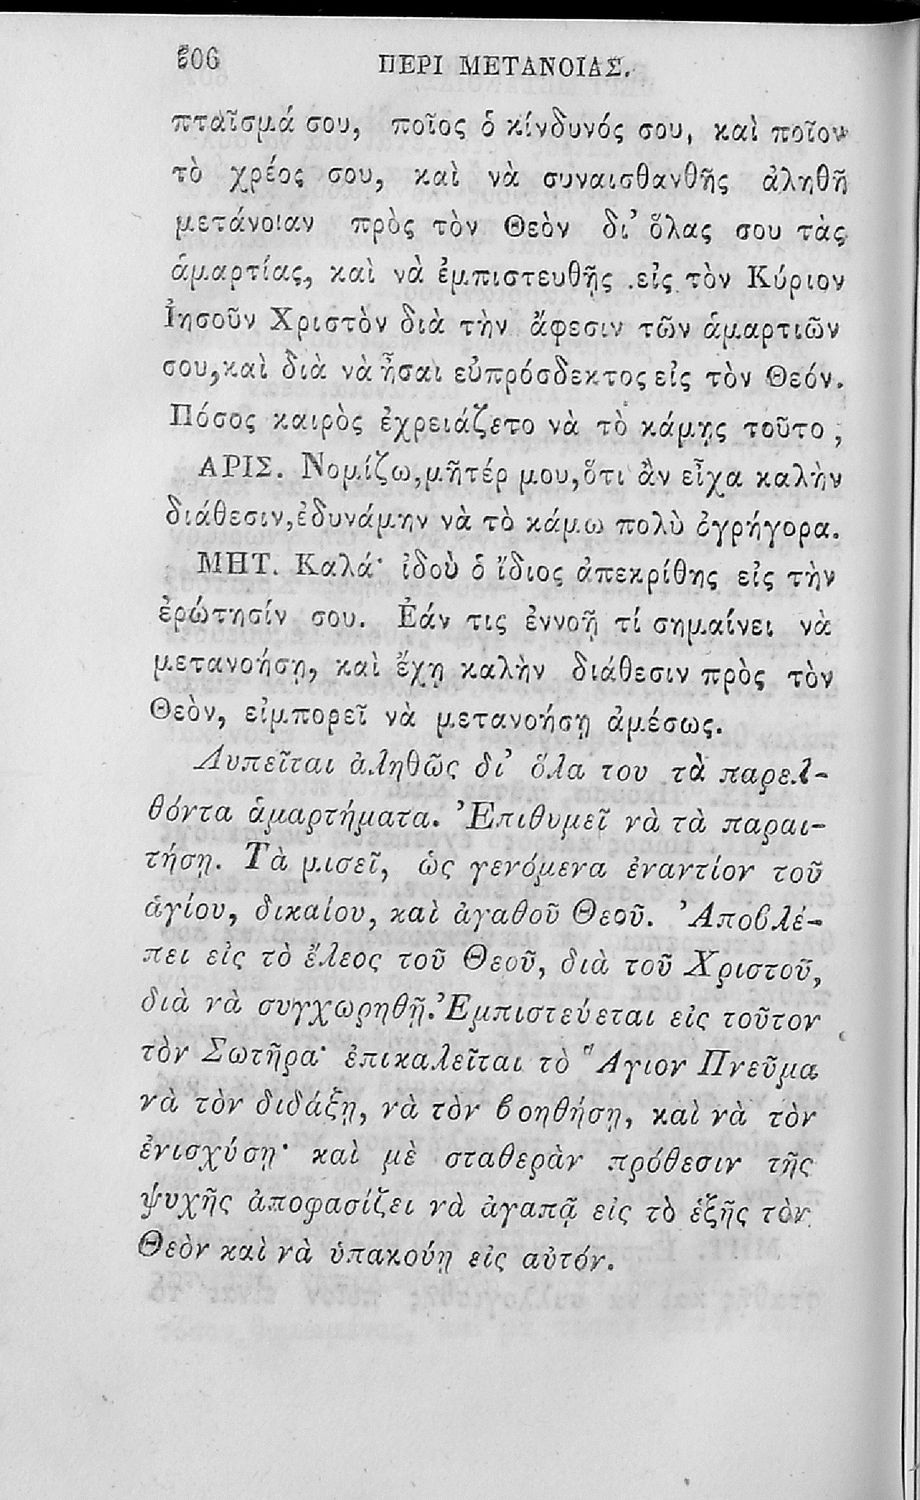 206 ΠΕΡΙ ΜΕΤΑΝΟΙΑΣ.
πταῖσμά σου, ποῖος ὁ κίνδυνός σου, καὶ ποῖον
τὸ χρέος σου, καὶ νὰ συναισθανθῇς ἀληθῆ
μετάνοιαν πρὸς τὸν Θεὸν δι᾽ ὅλας σου τὰς
ἁμαρτίας, καὶ νὰ ἐμπιστευθῇς εἰς τὸν Κύριον
Ἰησοῦν Χριστὸν διὰ τὴν ἄφεσιν τῶν ἁμαρτιῶν
σου, καὶ διὰ νὰ ἦσαι εὐπρόσδεκτος εἰς τὸν Θεόν.
Πόσος καιρὸς ἐχρειάζετο νὰ τὸ κάμῃς τοῦτο ;
ΑΡΙΣ. Νομίζω, μῆτέρ μου, ὅτι ἂν εἶχα καλὴν
διάθεσιν, ἐδυνάμην νὰ τὸ κάμω πολὺ ὀγρήγορα.
ΜΗΤ. Καλά· ἰδοὺ ὁ ἴδιος ἀπεκρίθης εἰς τὴν
ἐρώτησίν σου. Ἐάν τις ἐννοῇ τί σημαίνει νὰ
μετανοήσῃ, καὶ ἔχῃ καλὴν διάθεσιν πρὸς τὸν
Θεὸν, εἰμπορεῖ νὰ μετανοήσῃ ἀμέσως.
Λυπεῖται ἀληθῶς δι᾽ ὅλα του τὰ παρελ-
θόντα ἁμαρτήματα. Ἐπιθυμεῖ νὰ τὰ παραι-
τήσῃ. Τὰ μισεῖ, ὡς γενόμενα ἐναντίον τοῦ
ἁγίου, δικαίου, καὶ ἀγαθοῦ Θεοῦ. Ἀποβλέ-
πει εἰς τὸ ἔλεος τοῦ Θεοῦ, διὰ τοῦ Χριστοῦ,
διὰ νὰ συγχωρηθῇ. Ἐμπιστεύεται εἰς τοῦτον
τὸν Σωτῆρα· ἐπικαλεῖται τὸ Ἅγιον Πνεῦμα
νὰ τὸν διδάξῃ, νὰ τὸν βοηθήσῃ, καὶ νὰ τὸν
ἐνισχύσῃ· καὶ μὲ σταθερὰν πρόθεσιν τῆς
ψυχῆς ἀποφασίζει νὰ ἀγαπᾷ εἰς τὸ ἑξῆς τὸν
Θεὸν καὶ νὰ ὑπακούῃ εἰς αὐτόν.